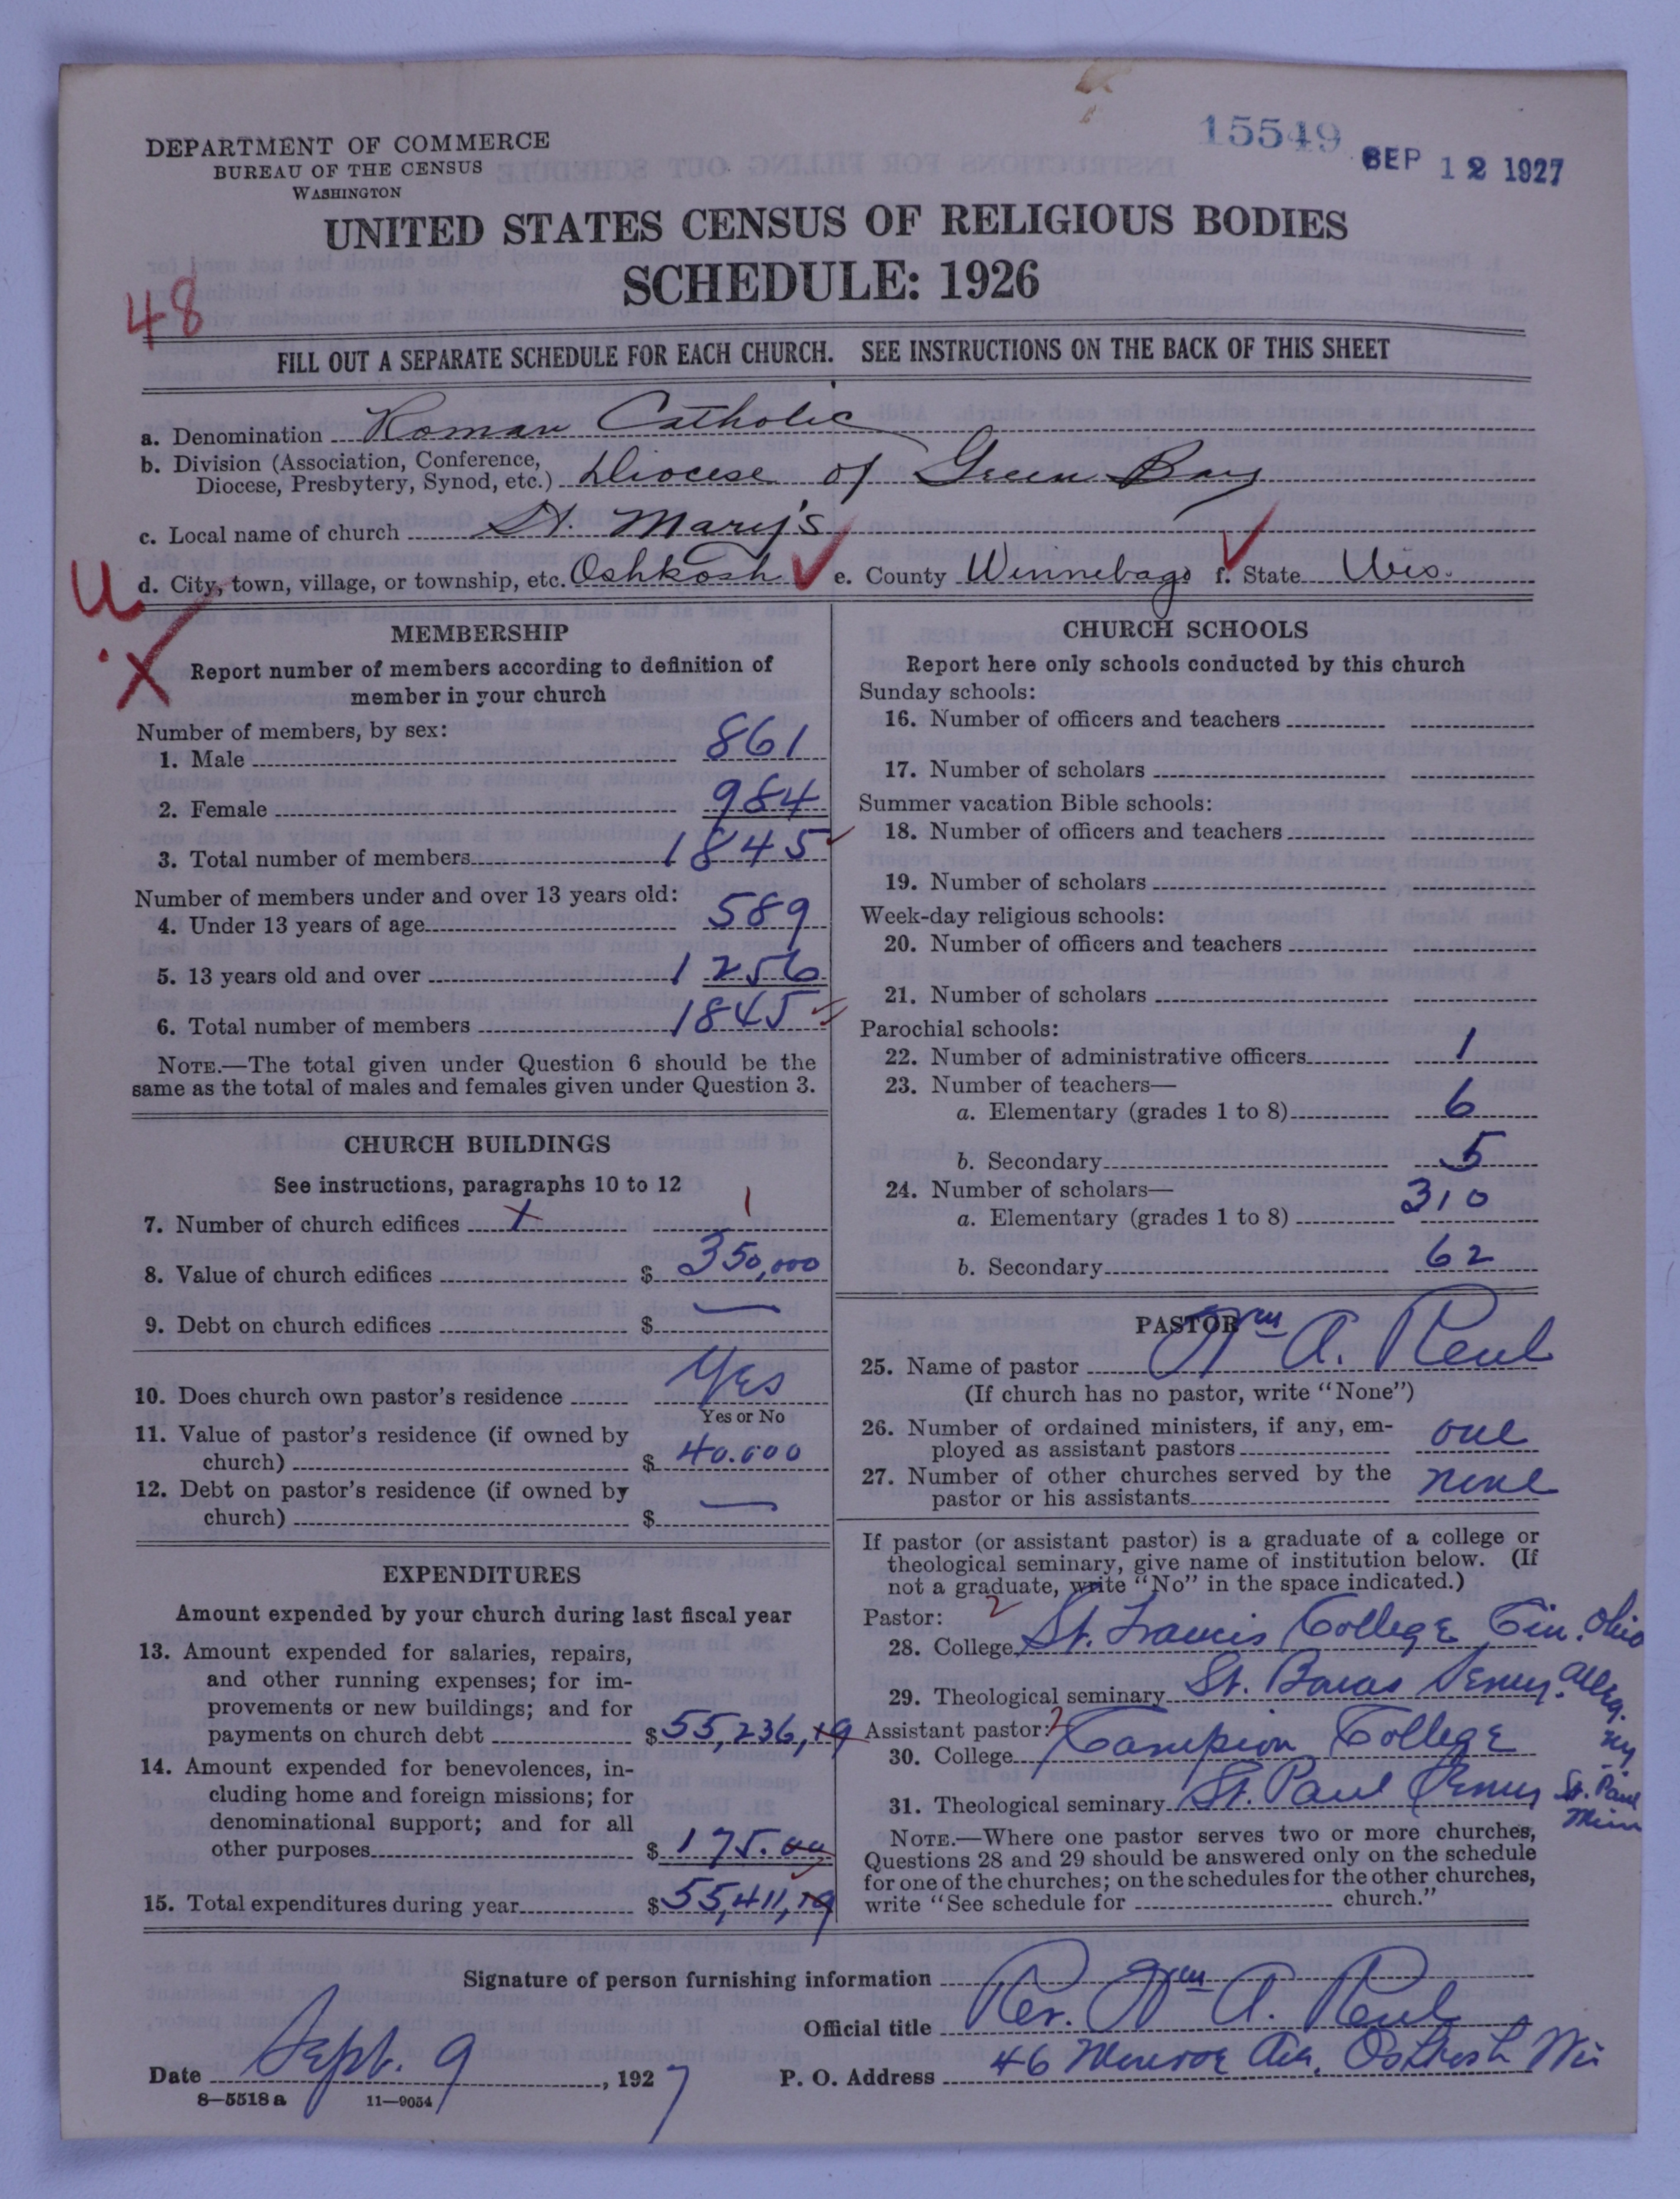 15549 SEP 12 1927
DEPARTMENT OF COMMERCE
BUREAU OF THE CENSUS
WASHINGTON
UNITED STATES CENSUS OF RELIGIOUS BODIES
SCHEDULE: 1926
48
FILL OUT A SEPARATE SCHEDULE FOR EACH CHURCH. SEE INSTRUCTIONS ON THE BACK OF THIS SHEET
a. Denomination Roman Catholic
b. Division (Association, Conference,
Diocese, Presbytery, Synod, etc.) Diocese of Green Bay
c. Local name of church St. Mary's
U
d. City, town, village, or township, etc. Oshkosh e. County Winnebago f. State Wis.
X
MEMBERSHIP
Report number of members according to definition of
member in your church
Number of members, by sex:
1. Male 861
2. Female 984
3. Total number of members 1845
Number of members under and over 13 years old:
4. Under 13 years of age 589
5. 13 years old and over 1256
6. Total number of members 1845
NOTE.—The total given under Question 6 should be the
same as the total of males and females given under Question 3.
CHURCH BUILDINGS
See instructions, paragraphs 10 to 12
7. Number of church edifices 1 1
8. Value of church edifices $ 350,000
9. Debt on church edifices $ —
10. Does church own pastor's residence Yes
Yes or No
11. Value of pastor's residence (if owned by
church) $ 40.000
12. Debt on pastor's residence (if owned by
church) $ —
EXPENDITURES
Amount expended by your church during last fiscal year
13. Amount expended for salaries, repairs,
and other running expenses; for im-
provements or new buildings; and for
payments on church debt $ 55,236,19
14. Amount expended for benevolences, in-
cluding home and foreign missions; for
denominational support; and for all
other purposes $ 175.00
15. Total expenditures during year $ 55,411,19
CHURCH SCHOOLS
Report here only schools conducted by this church
Sunday schools:
16. Number of officers and teachers
17. Number of scholars
Summer vacation Bible schools:
18. Number of officers and teachers
19. Number of scholars
Week-day religious schools:
20. Number of officers and teachers
21. Number of scholars
Parochial schools:
22. Number of administrative officers 1
23. Number of teachers—
a. Elementary (grades 1 to 8) 6
b. Secondary 5
24. Number of scholars—
a. Elementary (grades 1 to 8) 310
b. Secondary 62
PASTOR
25. Name of pastor Wm A. Reul
(If church has no pastor, write "None")
26. Number of ordained ministers, if any, em-
ployed as assistant pastors one
27. Number of other churches served by the
pastor or his assistants none
If pastor (or assistant pastor) is a graduate of a college or
theological seminary, give name of institution below. (If
not a graduate, write "No" in the space indicated.)
Pastor: 2
28. College St. Francis College Cin. Ohio
29. Theological seminary St. Bonas Semy. Alleg. NY.
Assistant pastor: 2
30. College Campion College
31. Theological seminary St. Paul Semy St. Paul Minn
NOTE.—Where one pastor serves two or more churches,
Questions 28 and 29 should be answered only on the schedule
for one of the churches; on the schedules for the other churches,
write "See schedule for church."
Signature of person furnishing information Rev. Wm A. Reul
Official title
Date Sept. 9, 1927 P. O. Address 46 Monroe Ave. Oshkosh Wis
8—5518 a 11—9034